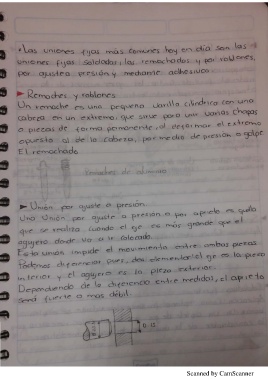 •Las uniones fijas más comunes hoy en día son las
uniones fijas soldadas, las remachadas y por roblones,
por ajustes presión y mediante adhesivos.
► Remaches y roblones
Un remache es una pequeña varilla cilíndrica con una
cabeza en un extremo, que sirve para unir varias chapas
o piezas de forma permanente, al deformar el extremo
opuesto al de la cabeza, por medio de presión o golpe
El remachado
Remaches de
► Unión por ajuste a presión.
Una unión por ajuste a presión o por apriete es aquella
que se realiza cuando el eje es más grande que el
agujero donde va a ir colocado.
Esta unión impide el movimiento entre ambas piezas
Podemos diferenciar pues, dos elementos: el eje es la pieza
interior y el agujero es la pieza exterior.
Dependiendo de la diferencia entre medidas, el apriete
será fuerte o más débil.
Scanned by CamScanner